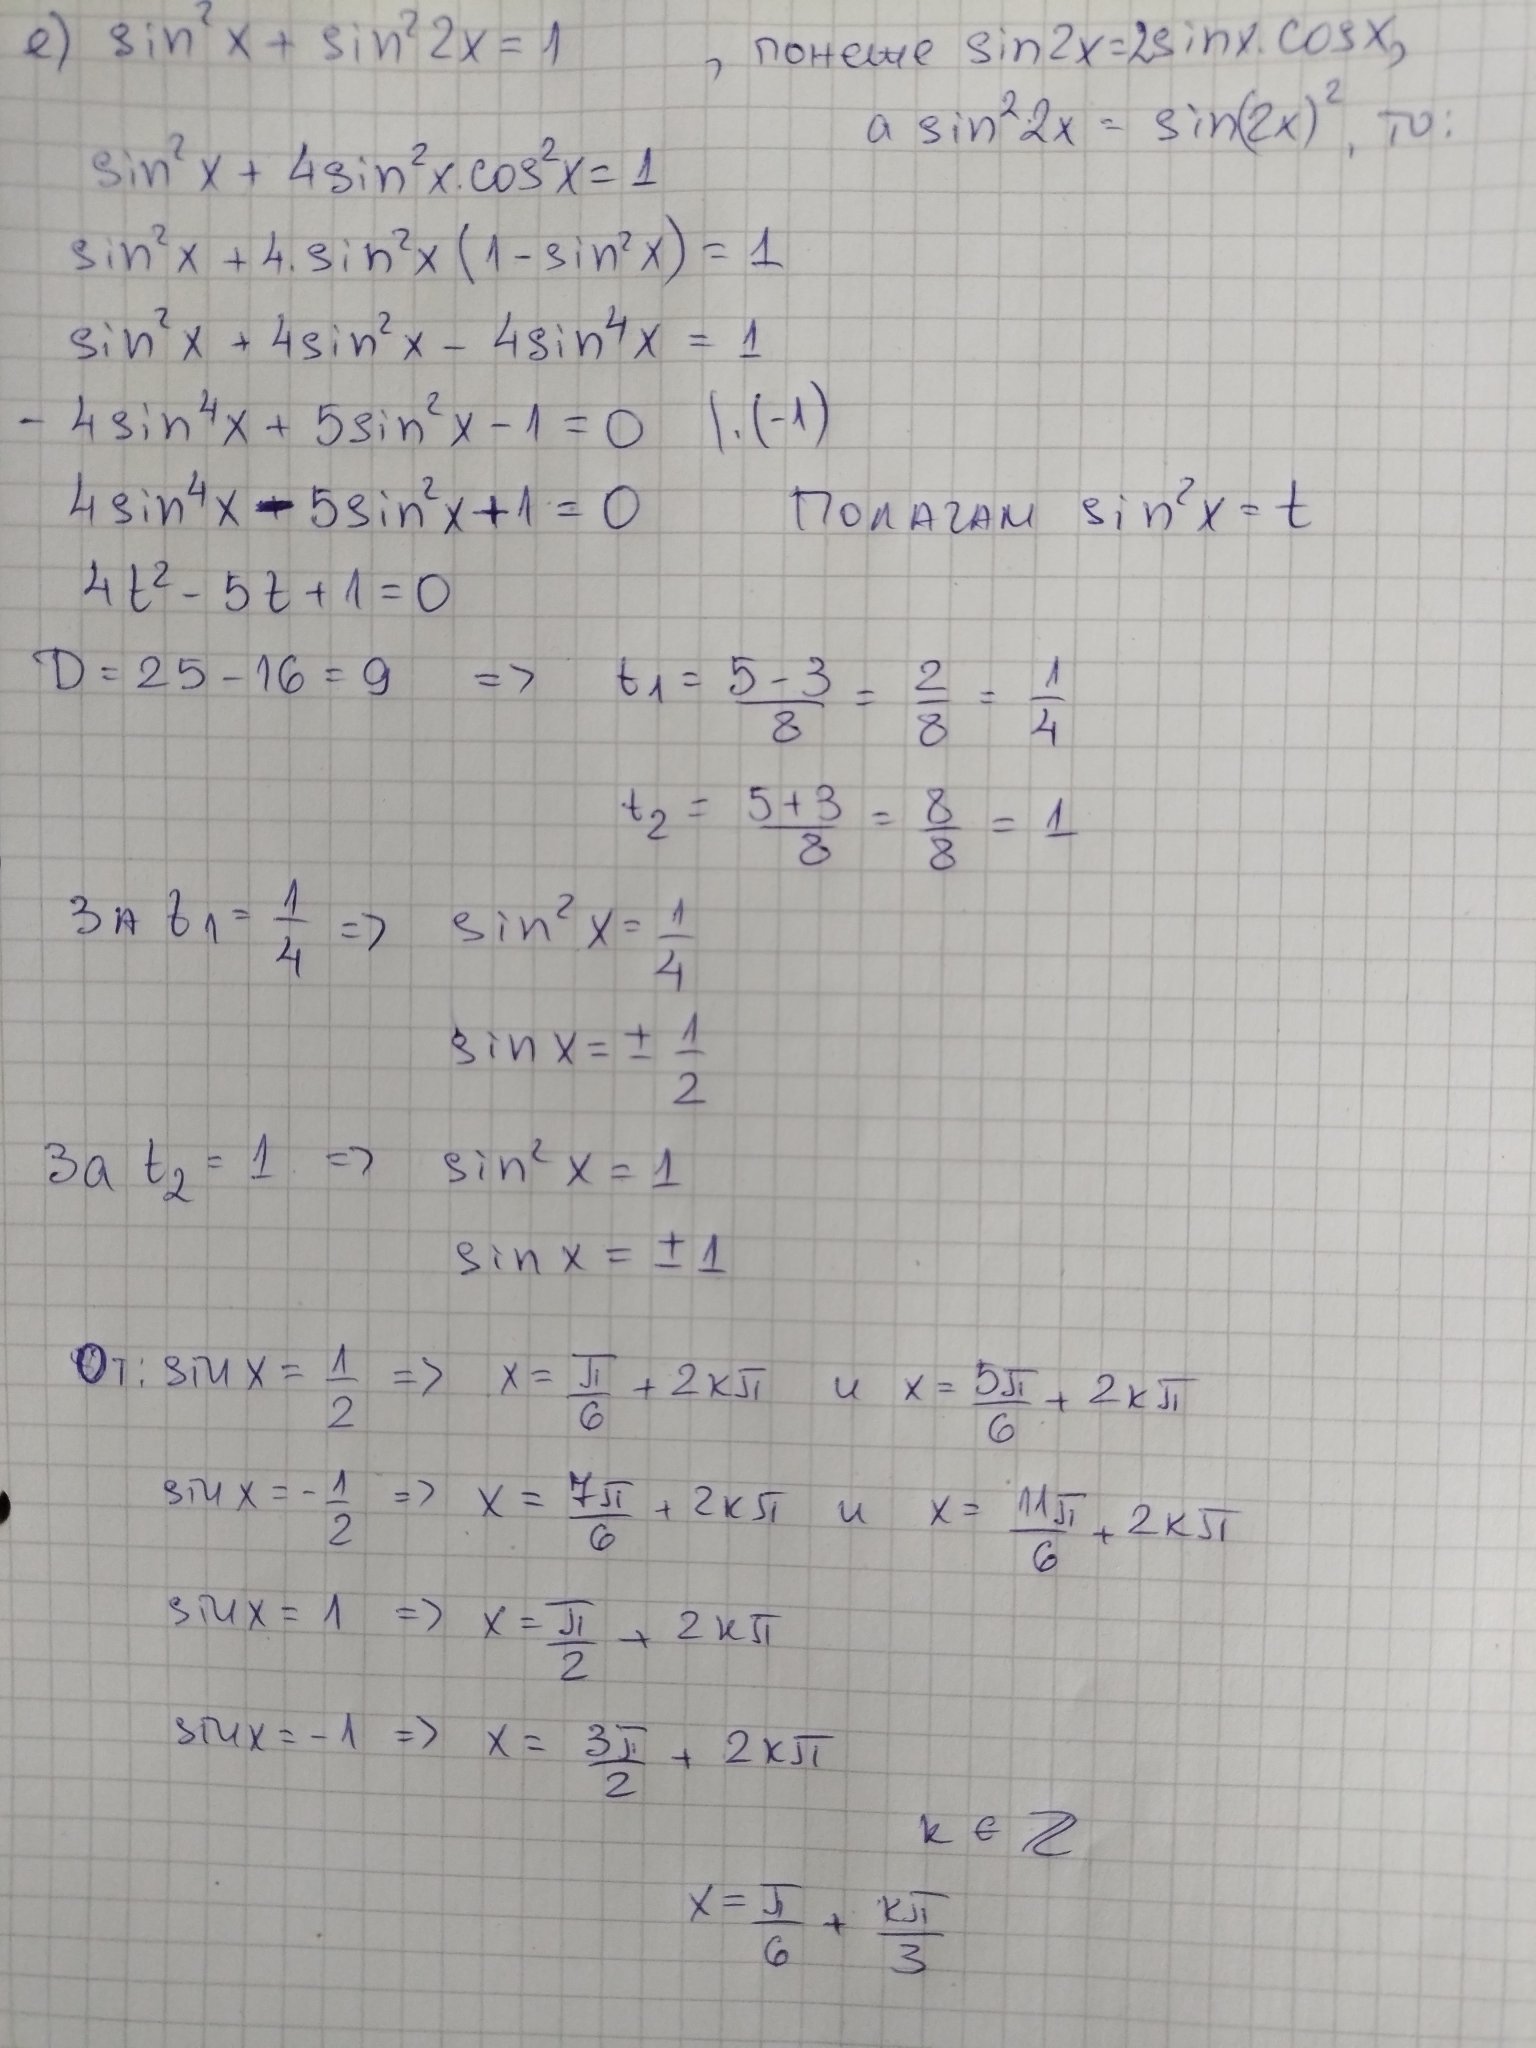 е) sin²x + sin²2x = 1 , понеже sin2x=2sinx.cosx,
а sin²2x = sin(2x)², то:
sin²x + 4sin²x.cos²x = 1
sin²x + 4.sin²x(1-sin²x) = 1
sin²x + 4sin²x - 4sin⁴x = 1
- 4sin⁴x + 5sin²x - 1 = 0 |.(-1)
4sin⁴x - 5sin²x + 1 = 0 Полагам sin²x = t
4t² - 5t + 1 = 0
D = 25 - 16 = 9 => t₁ = (5-3)/8 = 2/8 = 1/4
t₂ = (5+3)/8 = 8/8 = 1
За t₁ = 1/4 => sin²x = 1/4
sin x = ± 1/2
За t₂ = 1 => sin²x = 1
sin x = ± 1
От: sin x = 1/2 => x = π/6 + 2kπ и x = 5π/6 + 2kπ
sin x = - 1/2 => x = 7π/6 + 2kπ и x = 11π/6 + 2kπ
sin x = 1 => x = π/2 + 2kπ
sin x = -1 => x = 3π/2 + 2kπ
k ∈ ℤ
x = π/6 + kπ/3